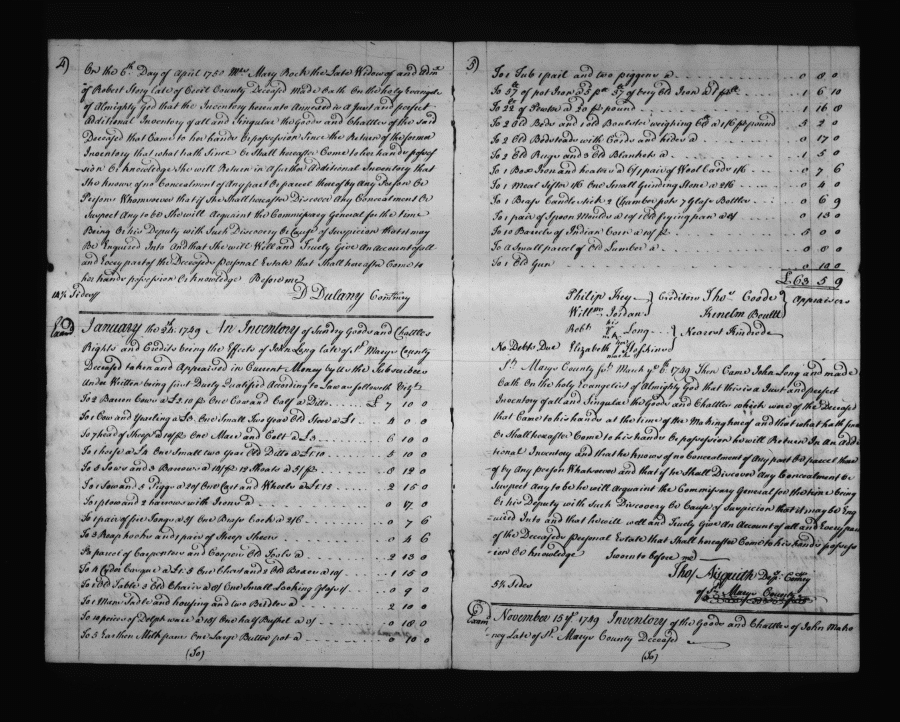 4)
On the 6th Day of April 1750 Mrs Mary Rock the Late Widow of and Admx
of Robert Story late of Cecil County Deceased Made Oath On the holy Evangels
of Almighty God that the Inventory hereunto Annexed is a Just and perfect
Additional Inventory of all and Singular the Goods and Chattles of the said
Deceased that Came to her hands & possession Since the Return of the former
Inventory that what hath Since Or Shall hereafter Come to her hands posses
sion Or knowledge She will Return in A further Additional Inventory that
She knows of no Concealment of Any part Or parcel thereof by Any Person Or
Persons Whomsoever that if She Shall hereafter Discover Any Concealment Or
Suspect Any to be She will Acquaint the Commissary General for the time
Being Or his Deputy with Such Discovery Or Cause of Suspicion that it may
Be Enquired Into And that She will Well and Truely Give An Account of all
and Every part of the Deceaseds Personal Estate that Shall hereafter Come to
her hands possession Or knowledge Before me
D Dulany Comsry
14½ Sides
January the 24th 1749 An Inventory of Sundry Goods and Chattles
Rights and Credits being the Effects of John Long late of St Marys County
Deceased taken and Appraised in Current Money by us the Subscribers
Under Written being first Duely Qualified According to Law as followeth Vizt
To 2 Barren Cows a £2..10 ps One Cow and Calf a Ditto £ 7 10 0
To 1 Cow and Yearling a £3. One Small Two Year Old Steer a £1 4 0 0
To 7 head of Sheep a 10/ps One Mare and Colt a £3 6 10 0
To 1 horse a £4 One Small two Year Old Ditto a £1..10 5 10 0
To 5 Sows and 3 Barrows a 14/ps 12 Shoats a 5/ps 8 12 0
To 1 Sow and Piggs a One Cart and Wheels a £1.15 2 15 0
To 1 plow and 2 harrows with Irons a 0 17 0
To 1 pair of fire Tongs a One Brass Cock a 2/6 0 7 6
To 3 Reap hooks and 1 pair of Sheep Sheers 0 4 6
To parcel of Carpenters and Coopers Old Tools a 2 13 0
To 4 Cyder Casque a £1.5 One Chest and 2 Old Boxes a 10/ 1 15 0
To 1 Old Table 3 Old Chairs a One Small Looking Glass 0 9 0
To 1 Mans Saddle and housing and two Bridles a 2 10 0
To 10 pieces of Delph ware a One half Bushel a 0 18 0
To 5 Earthen Milk pans One Large Butter pot a 0 10 0
(To)
5)
To 1 Tub 1 pail and two piggens a 0 8 0
To 57 of pot Iron a of very Old Iron a 1 6 10
To 22 of Pewter a 20 ps pound 1 16 8
To 2 Old Beds and 1 Old Boulster weighing a 1/6 ps pound 5 2 0
To 2 Old Bedsteads with Cords and hides a 0 17 0
To 2 Old Ruggs and 3 Old Blankets a 1 5 0
To 1 Box Iron and heaters a 6/ 1 pair of Wool Cards 1/6 0 7 6
To 1 Meal Sifter 1/6 One Small Grinding Stone a 2/6 0 4 0
To 1 Brass Candlestick 2 Chamber pots 7 Glass Bottles 0 6 9
To 1 pair of Spoon Moulds a 1 Old frying pan a 0 13 0
To 10 Barrels of Indian Corn a 10/ps 5 0 0
To A Small parcel of Old Lumber a 0 8 0
To 1 Old Gun 0 10 0
£ 63 5 9
Philip Key Creditors Thos Coode Appraisers
Willm Jordan Kenelm Boult
Robt his mark Long Nearest Kindred
No Debts Due Elizabeth her mark Hoskins
St Marys County Sst March ye 6th 1749 Then Came John Long and made
Oath On the holy Evangelis of Almighty God that this is a Just and perfect
Inventory of all and Singular the Goods and Chattles which were of the Deceased
that Came to his hands at the time of the Making hereof and that what hath Since
Or Shall hereafter Come to his hands Or possession he will Return In An addi
tional Inventory and that he knows of no Concealment of Any part Or parcel there
of by Any person Whatsoever and that if he Shall Discover Any Concealment Or
Suspect Any to be he will Acquaint the Commissary General for the time being
Or his Deputy with Such Discovery Or Cause of Suspicion that it may be Enq
uired Into and that he will well and Truely Give An Account of all and Every part
of the Deceaseds Personal Estate that Shall hereafter Come to his hands possess
ion Or knowledge Sworn to before me
Thos Aisquith Depy Comsry
of St Marys County
5½ Sides
Exam November 15th 1749 Inventory of the Goods and Chattles of John Maho
ney Late of St Marys County Deceased
(To)